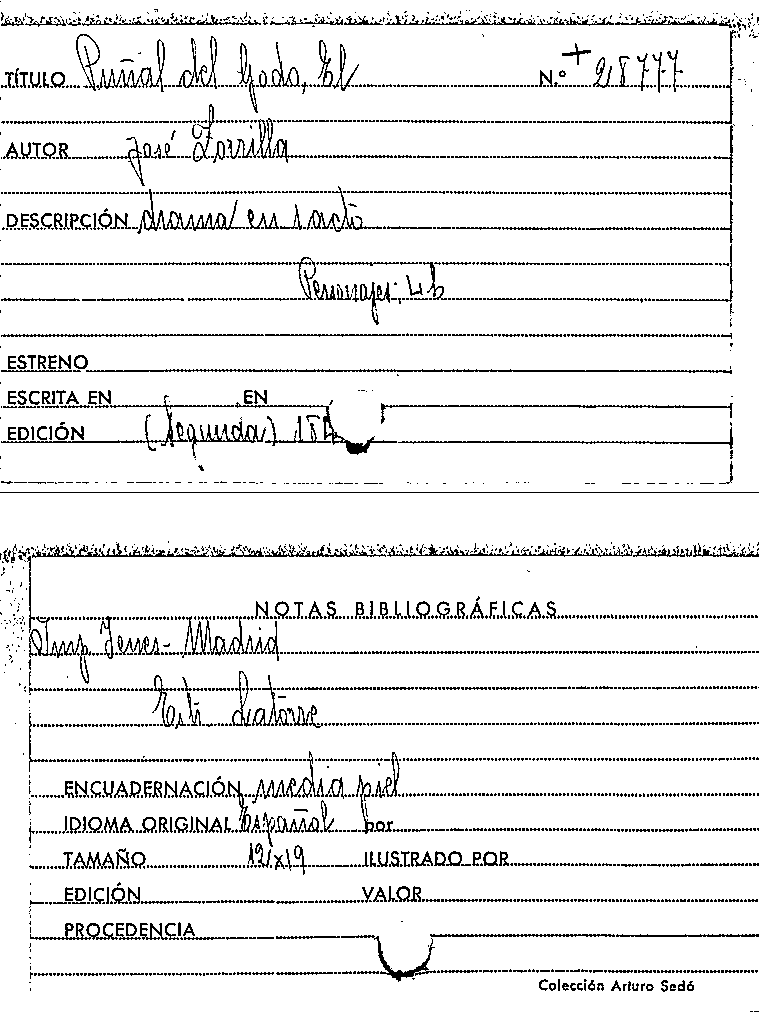 TÍTULO Puñal del Godo, El N.º + 28777
AUTOR José Zorrilla
DESCRIPCIÓN drama en 1 acto
Personajes: 4 h
ESTRENO
ESCRITA EN EN
EDICIÓN (Segunda)
NOTAS BIBLIOGRÁFICAS
Imp Yenes - Madrid
Latorre
ENCUADERNACIÓN media piel
IDIOMA ORIGINAL Español por
TAMAÑO 12 x 19 ILUSTRADO POR
EDICIÓN VALOR
PROCEDENCIA
Colección Arturo Sedó